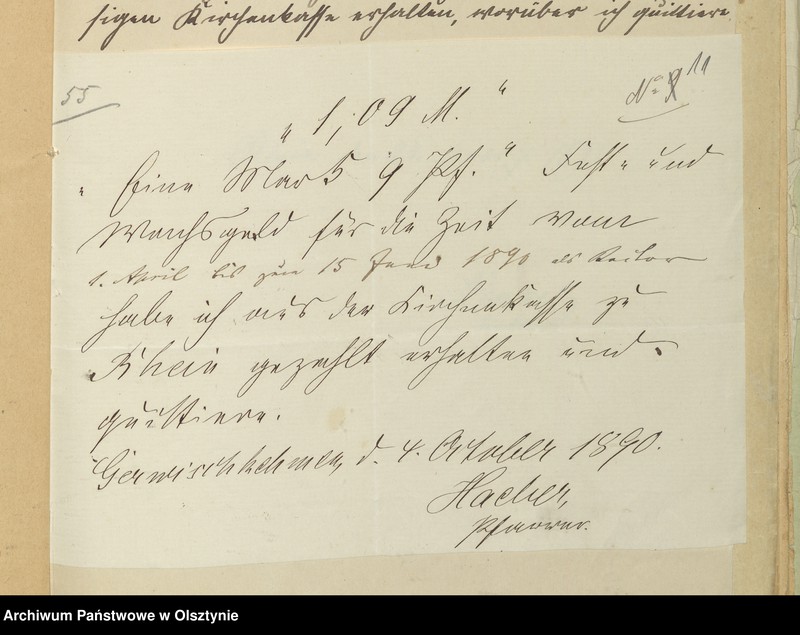 sigen Kirchenkasse erhalten, worüber ich quittiere.
55
No 9 11
„ 1,09 M. “
„ Eine Mark 9 Pf. “ Fest- und
Wachsgeld für die Zeit vom
1. April bis zum 15 Juni 1890 als Rector
habe ich aus der Kirchenkasse zu
Rhein gezahlt erhalten und
quittiere.
Gerwischkehmen, d. 4. October 1890.
Hacher,
Pfarrer.
Archiwum Państwowe w Olsztynie